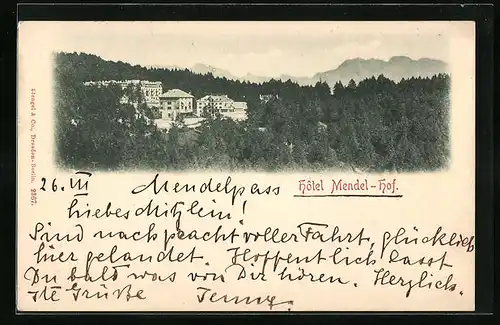 Stengel & Co., Dresden-Berlin. 2967.
26. III Mendelpass
Hôtel Mendel-Hof.
Liebes Mitzlein!
Sind nach prachtvoller Fahrt, glücklich
hier gelandet. Hoffentlich lasst
Du bald was von Dir hören. Herzlich-
ste Grüße Jenny.